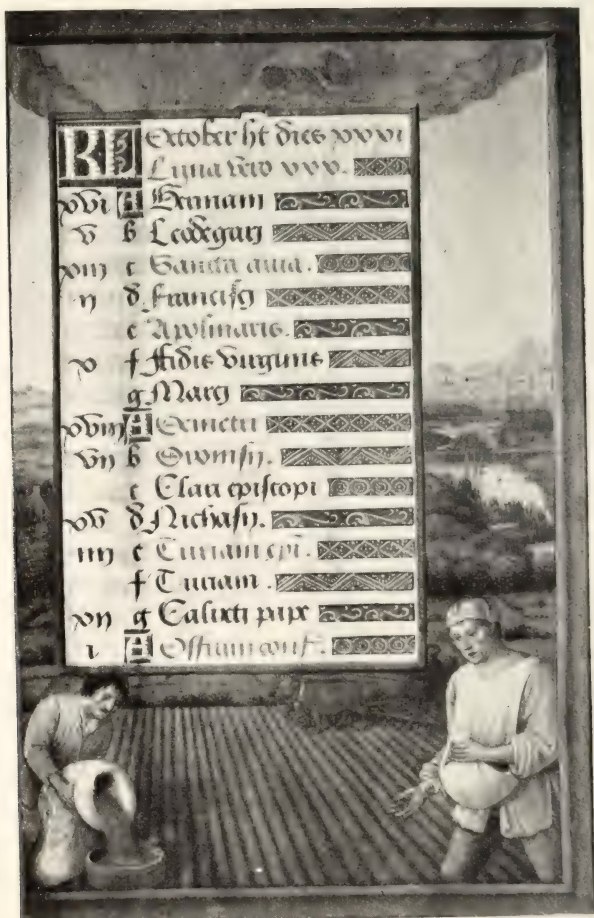 KL October ht dies xxxi
Luna vero xxx.
xvi A Germani
v b Leodegarj
xiij c Sancta
ij d Francisçj
e Apolinaris.
x f Fidis virginis
g Marcj
xviij A Demetri
vij b Dionisij.
c Clari episcopi
xv d Nichasij.
iiij e Turiani epi.
f Turiani.
xij g Calixti pape
i A conf.